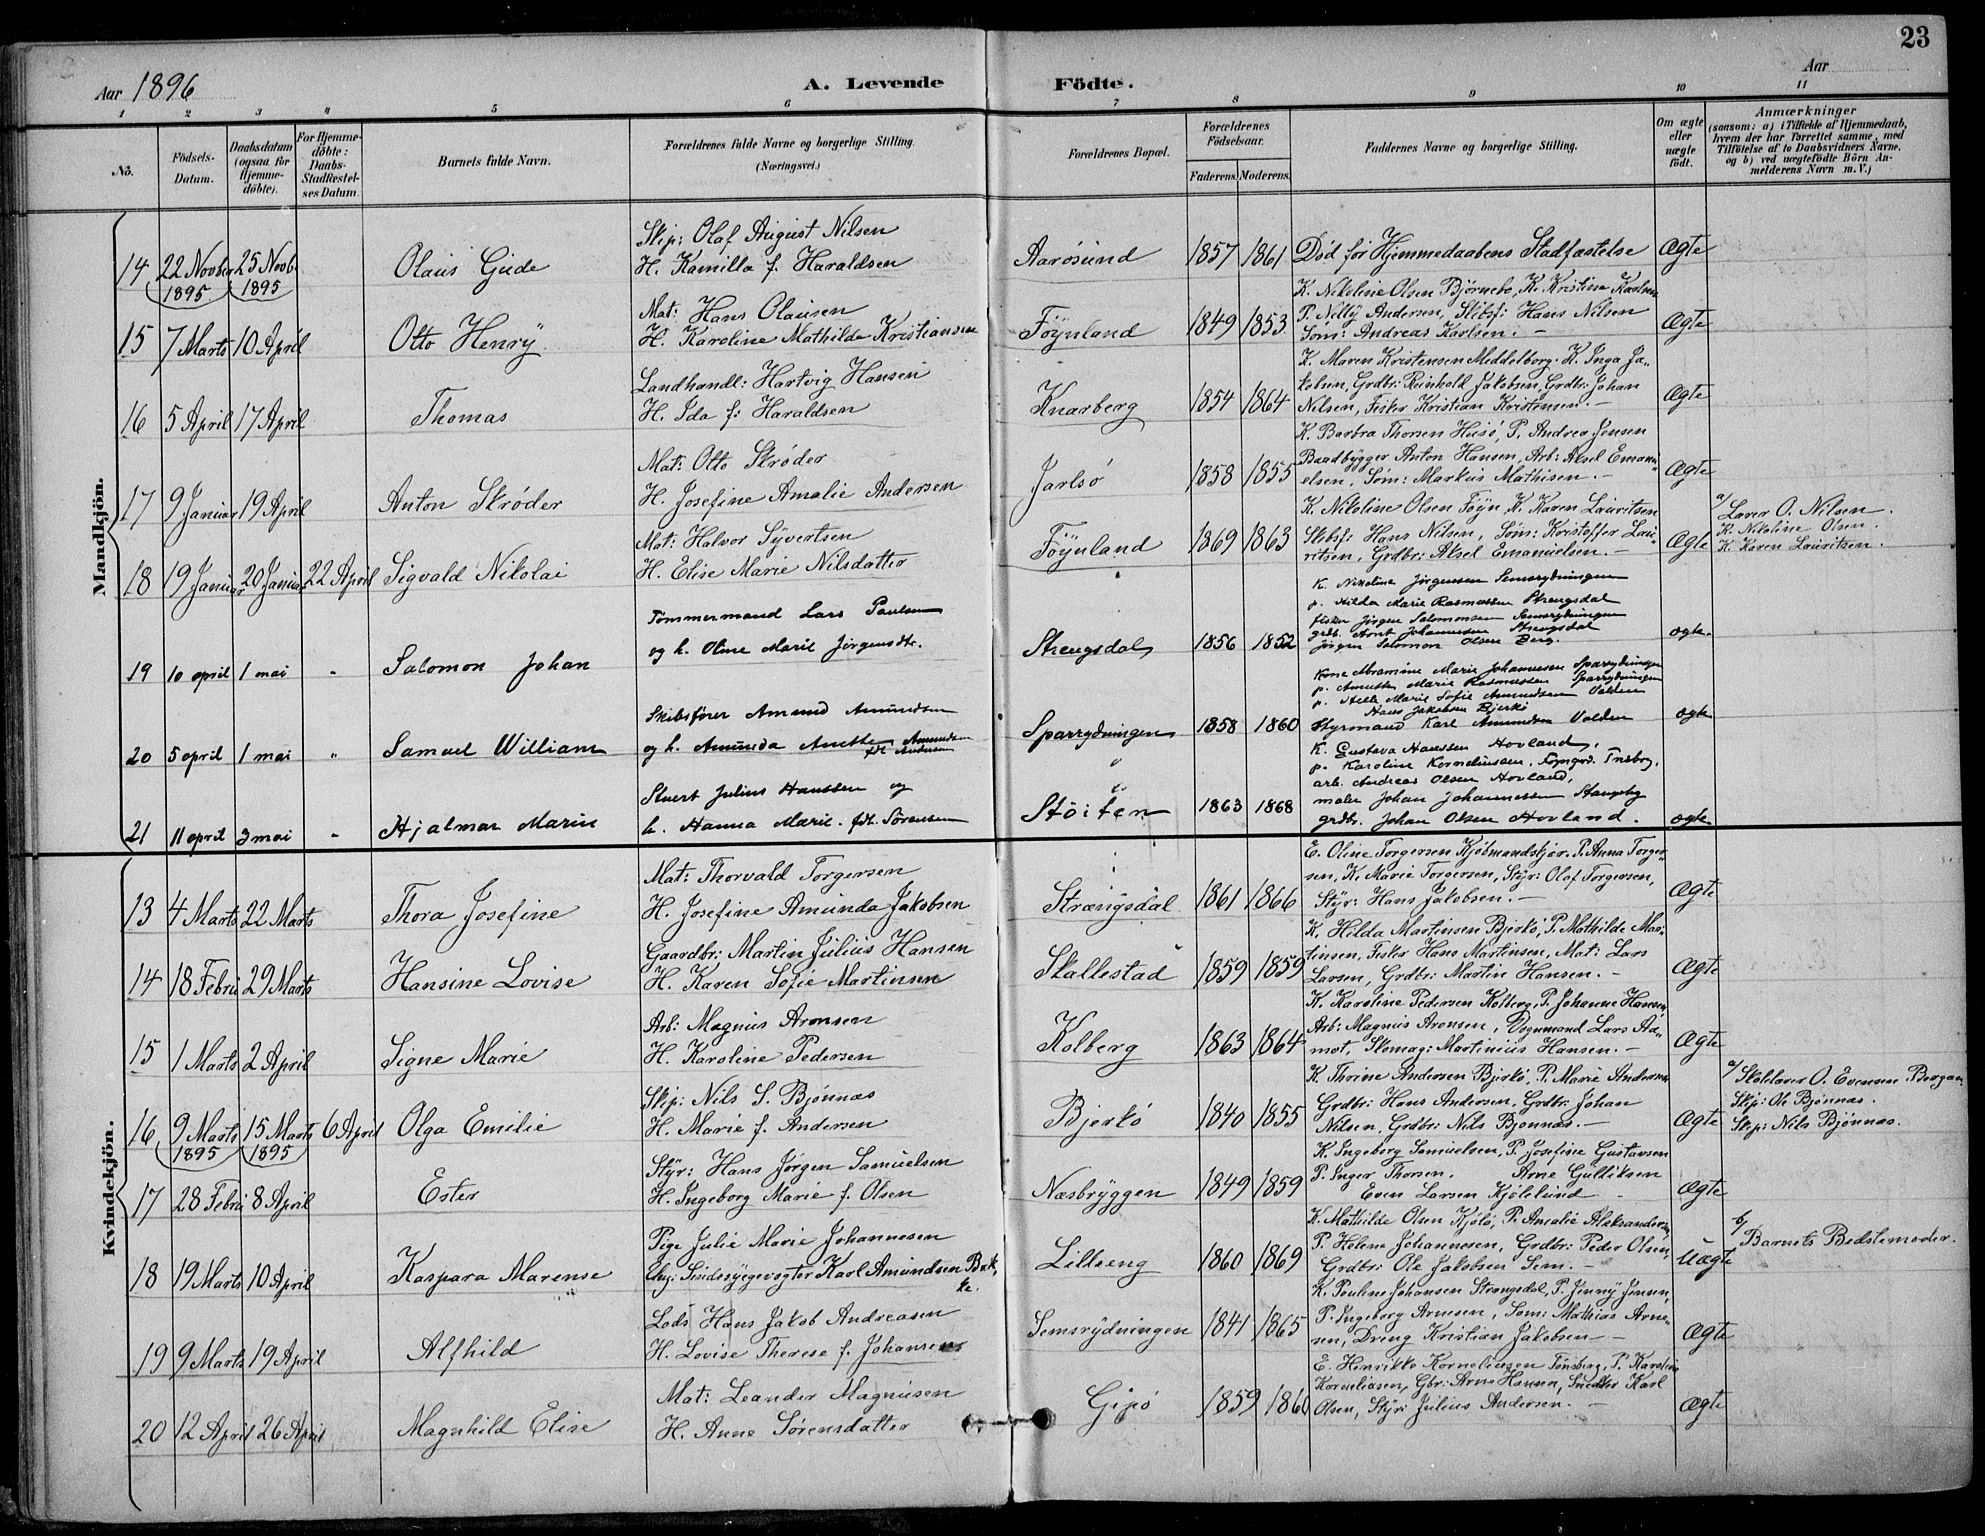 23
Aar 1896
A. Levende Födte.
Aar
1 2 3 4 5 6 7 8 9 10 11
No.
Födsels-Datum.
Daabsdatum (ogsaa for Hjemme-döbte).
For Hjemme-döbte: Daabs-Stadfæstel-ses Datum.
Barnets fulde Navn.
Forældrenes fulde Navne og borgerlige Stilling. (Næringsvei.)
Forældrenes Bopæl.
Forældrenes Födselsaar.
Faderens. Moderens.
Faddernes Navne og borgerlige Stilling.
Om ægte eller uægte födt.
Anmærkninger
(saasom: a) i Tilfælde af Hjemmedaab, hvem der har forrettet samme, med Tilföielse af to Daabsvidners Navne, og b) ved uægtefödte Börn An-melderens Navn m. V.)
Mandkjön.
14 22 Novber 1895 25 Novb. 1895 Olaus Gude
Skip: Olaf August Nilsen
H. Kamilla f. Haraldsen
Aarösund 1857 1861 Død før Hjemmedaabens Stadfæstelse Ægte
15 7 Marts 10 April Otto Henry
Mat: Hans Olausen
H. Karoline Mathilde Kristiansen
Föynland 1849 1853
K. Nikoline Olsen Bjørnebo, K. Kristine Karlsen
P. Nelly Andersen, Skibsf: Hans Nilsen
Søm: Andreas Karlsen. —
Ægte
16 5 April 17 April Thomas
Landhandl: Hartvig Hansen
H. Ida f: Haraldsen
Knarberg 1854 1864
K. Maren Kristensen Meddelborg. K. Inga Ja-
kobsen, Grdbr: Reinhold Jakobsen, Grdbr: Johan
Nilsen, Fisker Kristian Kristensen. —
Ægte
17 9 Januar 19 April Anton Skrøder
Mat: Otto Skrøder
H. Josefine Amalie Andersen
Jarlsø 1858 1855
K. Barbra Thorsen Husø, P. Andrea Jensen
Baadbygger Anton Hansen, Arb: Aksel Emanu-
elsen, Søm: Markus Mathisen. —
Ægte
18 19 Januar 20 Januar 22 April Sigvald Nikolai
Mat: Halvor Syvertsen
H. Elise Marie Nilsdatter
Föynland 1869 1863
K. Nikoline Olsen Føyn, K. Karen Lauritsen
Skibsf: Hans Nilsen, Søm: Kristoffer Lau-
ritsen, Grdbr: Aksel Emanuelsen. —
Ægte
a/ Lærer O. Nilsen.
K. Nikoline Olsen.
K. Karen Lauritsen.
19 10 april 1 mai " Salomon Johan
Tømmermand Lars Paulsen
og h. Oline Marie Jørgensdtr.
Strengsdal 1856 1852
K. Nikoline Jørgensen Semsrydningen
p. Hilda Marie Rasmussen Strengsdal
fisker Jørgen Salomonsen Semsrydningen
grdb. Arnt Johannesen Strengsdal
Jørgen Salomon Olsen Berg
ægte.
20 5 april 1 mai " Samuel William
Skibsfører Amund Amundsen
og h. Amunda Anette Amundsen
fdt. Andersen
Sparrydningen 1858 1860
Kone Abramine Marie Johannessen Sparrydningen
p. Anette Marie Rasmussen Sparrydningen
p. Helle Marie Sofie Amundsen Valden
Hans Jakobsen Bjerkø
Styrmand Karl Amundsen Valden
ægte
21 11 april 3 mai " Hjalmar Marin
Stuert Julius Hanssen og
h. Hanna Marie. fdt. Sørensen
Stoiten 1863 1868
K. Gustava Hanssen Hovland,
p. Karoline Kornelinssen,
arb. Andreas Olsen Hovland,
maler Johan Johannessen
grdbr. Johan Olsen Hovland.
ægte
Kvindekjön.
13 4 Marts 22 Marts Thora Josefine
Mat: Thorvald Torgersen
H. Josefine Amunda Jakobsen
Strængsdal 1861 1866
E. Oline Torgersen Kjøbmandskjær. P. Anna Torger-
sen, K. Marie Torgersen, Styr: Olaf Torgersen,
Styr: Hans Jakobsen. —
Ægte
14 18 Febru 29 Marts Hansine Lovise
Gaardbr: Martin Julius Hansen
H. Karen Sofie Martinsen
Skallestad 1859 1859
K. Hilda Martinsen Bjerkø, P. Mathilde Mar-
tinsen, Fisker Hans Martinsen, Mat: Lars
Larsen, Grdbr: Martin Hansen. —
Ægte
15 1 Marts 2 April Signe Marie
Arb: Magnus Aronsen
H. Karoline Pedersen
Kolberg 1863 1864
K. Karoline Pedersen Kolberg, P. Johanne Hansen
Arb: Magnus Aronsen, Vognmand Lars Aa-
mot, Skomag: Martinius Hansen. —
Ægte
16 9 Marts 1895 15 Marts 1895 6 April Olga Emilie
Skip: Nils S. Bjønnæs
H. Marie f. Andersen
Bjerkö 1840 1855
K. Thrine Andersen Bjerkø, P. Marie Andersen
Grdbr: Hans Andersen, Grdbr: Johan
Nilsen, Grdbr: Nils Bjønnæs. —
Ægte
a/ Skolelærer O. Evensen Bergan
Skip: Ole Bjønnæs.
Skip: Nils Bjönnæs.
17 28 Febru 8 April Ester
Styr: Hans Jørgen Samuelsen
H. Ingeborg Marie f. Olsen
Næsbryggen 1849 1859
K. Ingeborg Samuelsen, P. Josefine Gustavsen
P. Inger Thorsen. Arne Gulliksen
Even Larsen Kjølelund —
Ægte
18 19 Marts 10 April Kaspara Marense
Pige Julie Marie Johannesen
Ung: Sindssygevogter Karl Amundsen Bak-
ke.
Lilleeng 1860 1869
K. Mathilde Olsen Kjölö, P. Amalie Aleksandersen
P. Helene Johannesen, Grdbr: Peder Olsen,
Grdbr: Ole Jakobsen Sem. —
Uægte
b/ Barnets Bedstemoder.
19 9 Marts 19 April Alfhild
Lods Hans Jakob Andreasen
H. Lovise Therese f. Johansen
Semsrydningen 1841 1865
K. Pouline Johansen Strengsdal, P. Jenny Jensen,
P. Ingeborg Arnesen, Søm: Mathias Arne-
sen, Dreng Kristian Jakobsen —
Ægte
20 12 April 26 April Magnhild Elise
Mat: Leander Magnusen
H. Anne Sørensdatter
Gipö 1859 1860
E. Henrikke Korneliussen Tønsberg, P. Karoline
Korneliusen, Gbr: Arne Hansen, Snedker Karl
Olsen, Styr: Julius Andersen. —
Ægte